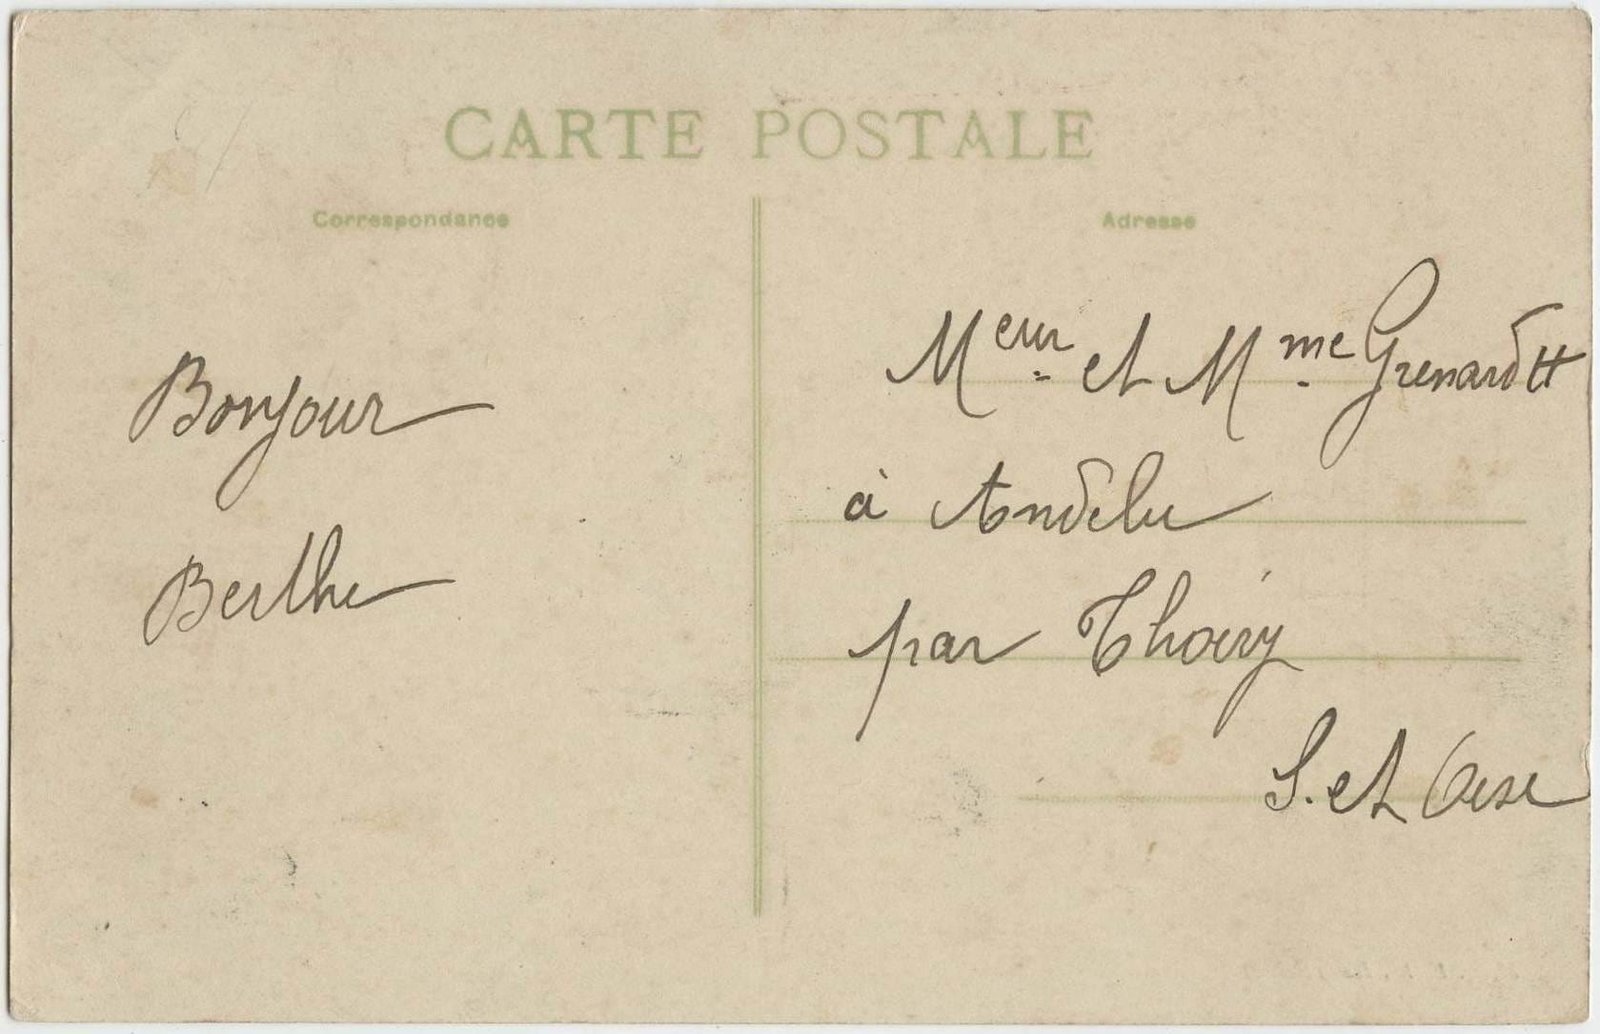 CARTE POSTALE
Correspondance
Adresse
Bonjour
Berthe
Meur et Mme
à Andelu
par Thoiry
S. et Oise